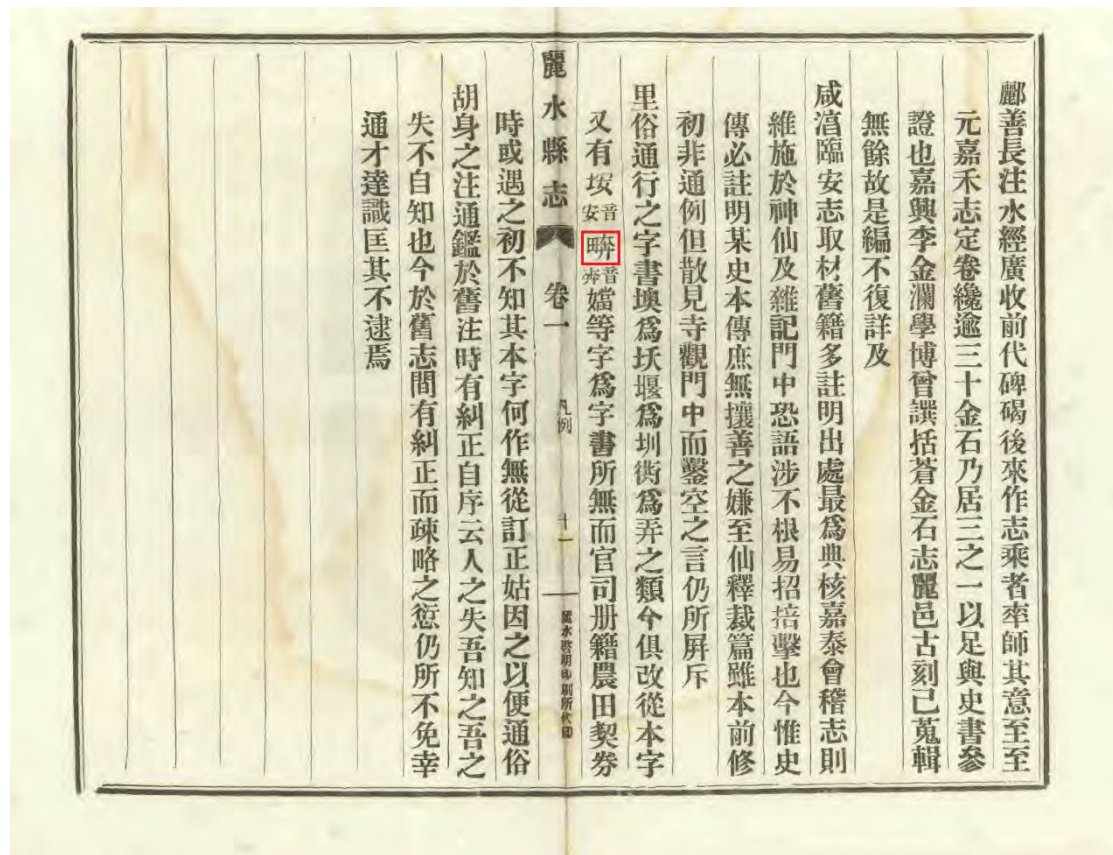 酈善長注水經廣收前代碑碣後來作志乘者率師其意至至
元嘉禾志定卷纔逾三十金石乃居三之一以足與史書參
證也嘉興李金瀾學博曾譔括蒼金石志麗邑古刻已蒐輯
無餘故是編不復詳及
咸湻臨安志取材舊籍多註明出處最爲典核嘉泰會稽志則
維施於神仙及雜記門中恐語涉不根易招掊擊也今惟史
傳必註明某史本傳庶無攘善之嫌至仙釋裁篇雖本前修
初非通例但散見寺觀門中而鑿空之言仍所屏斥
里俗通行之字書墺爲堰爲圳衖爲弄之類今俱改從本字
又有垵音安音等字爲字書所無而官司册籍農田契券
麗水縣志 卷一 凡例 十一 麗水啓明印刷所代印
時或遇之初不知其本字何作無從訂正姑因之以便通俗
胡身之注通鑑於舊注時有糾正自序云人之失吾知之吾之
失不自知也今於舊志間有糾正而疎略之愆仍所不免幸
通才達識匡其不逮焉